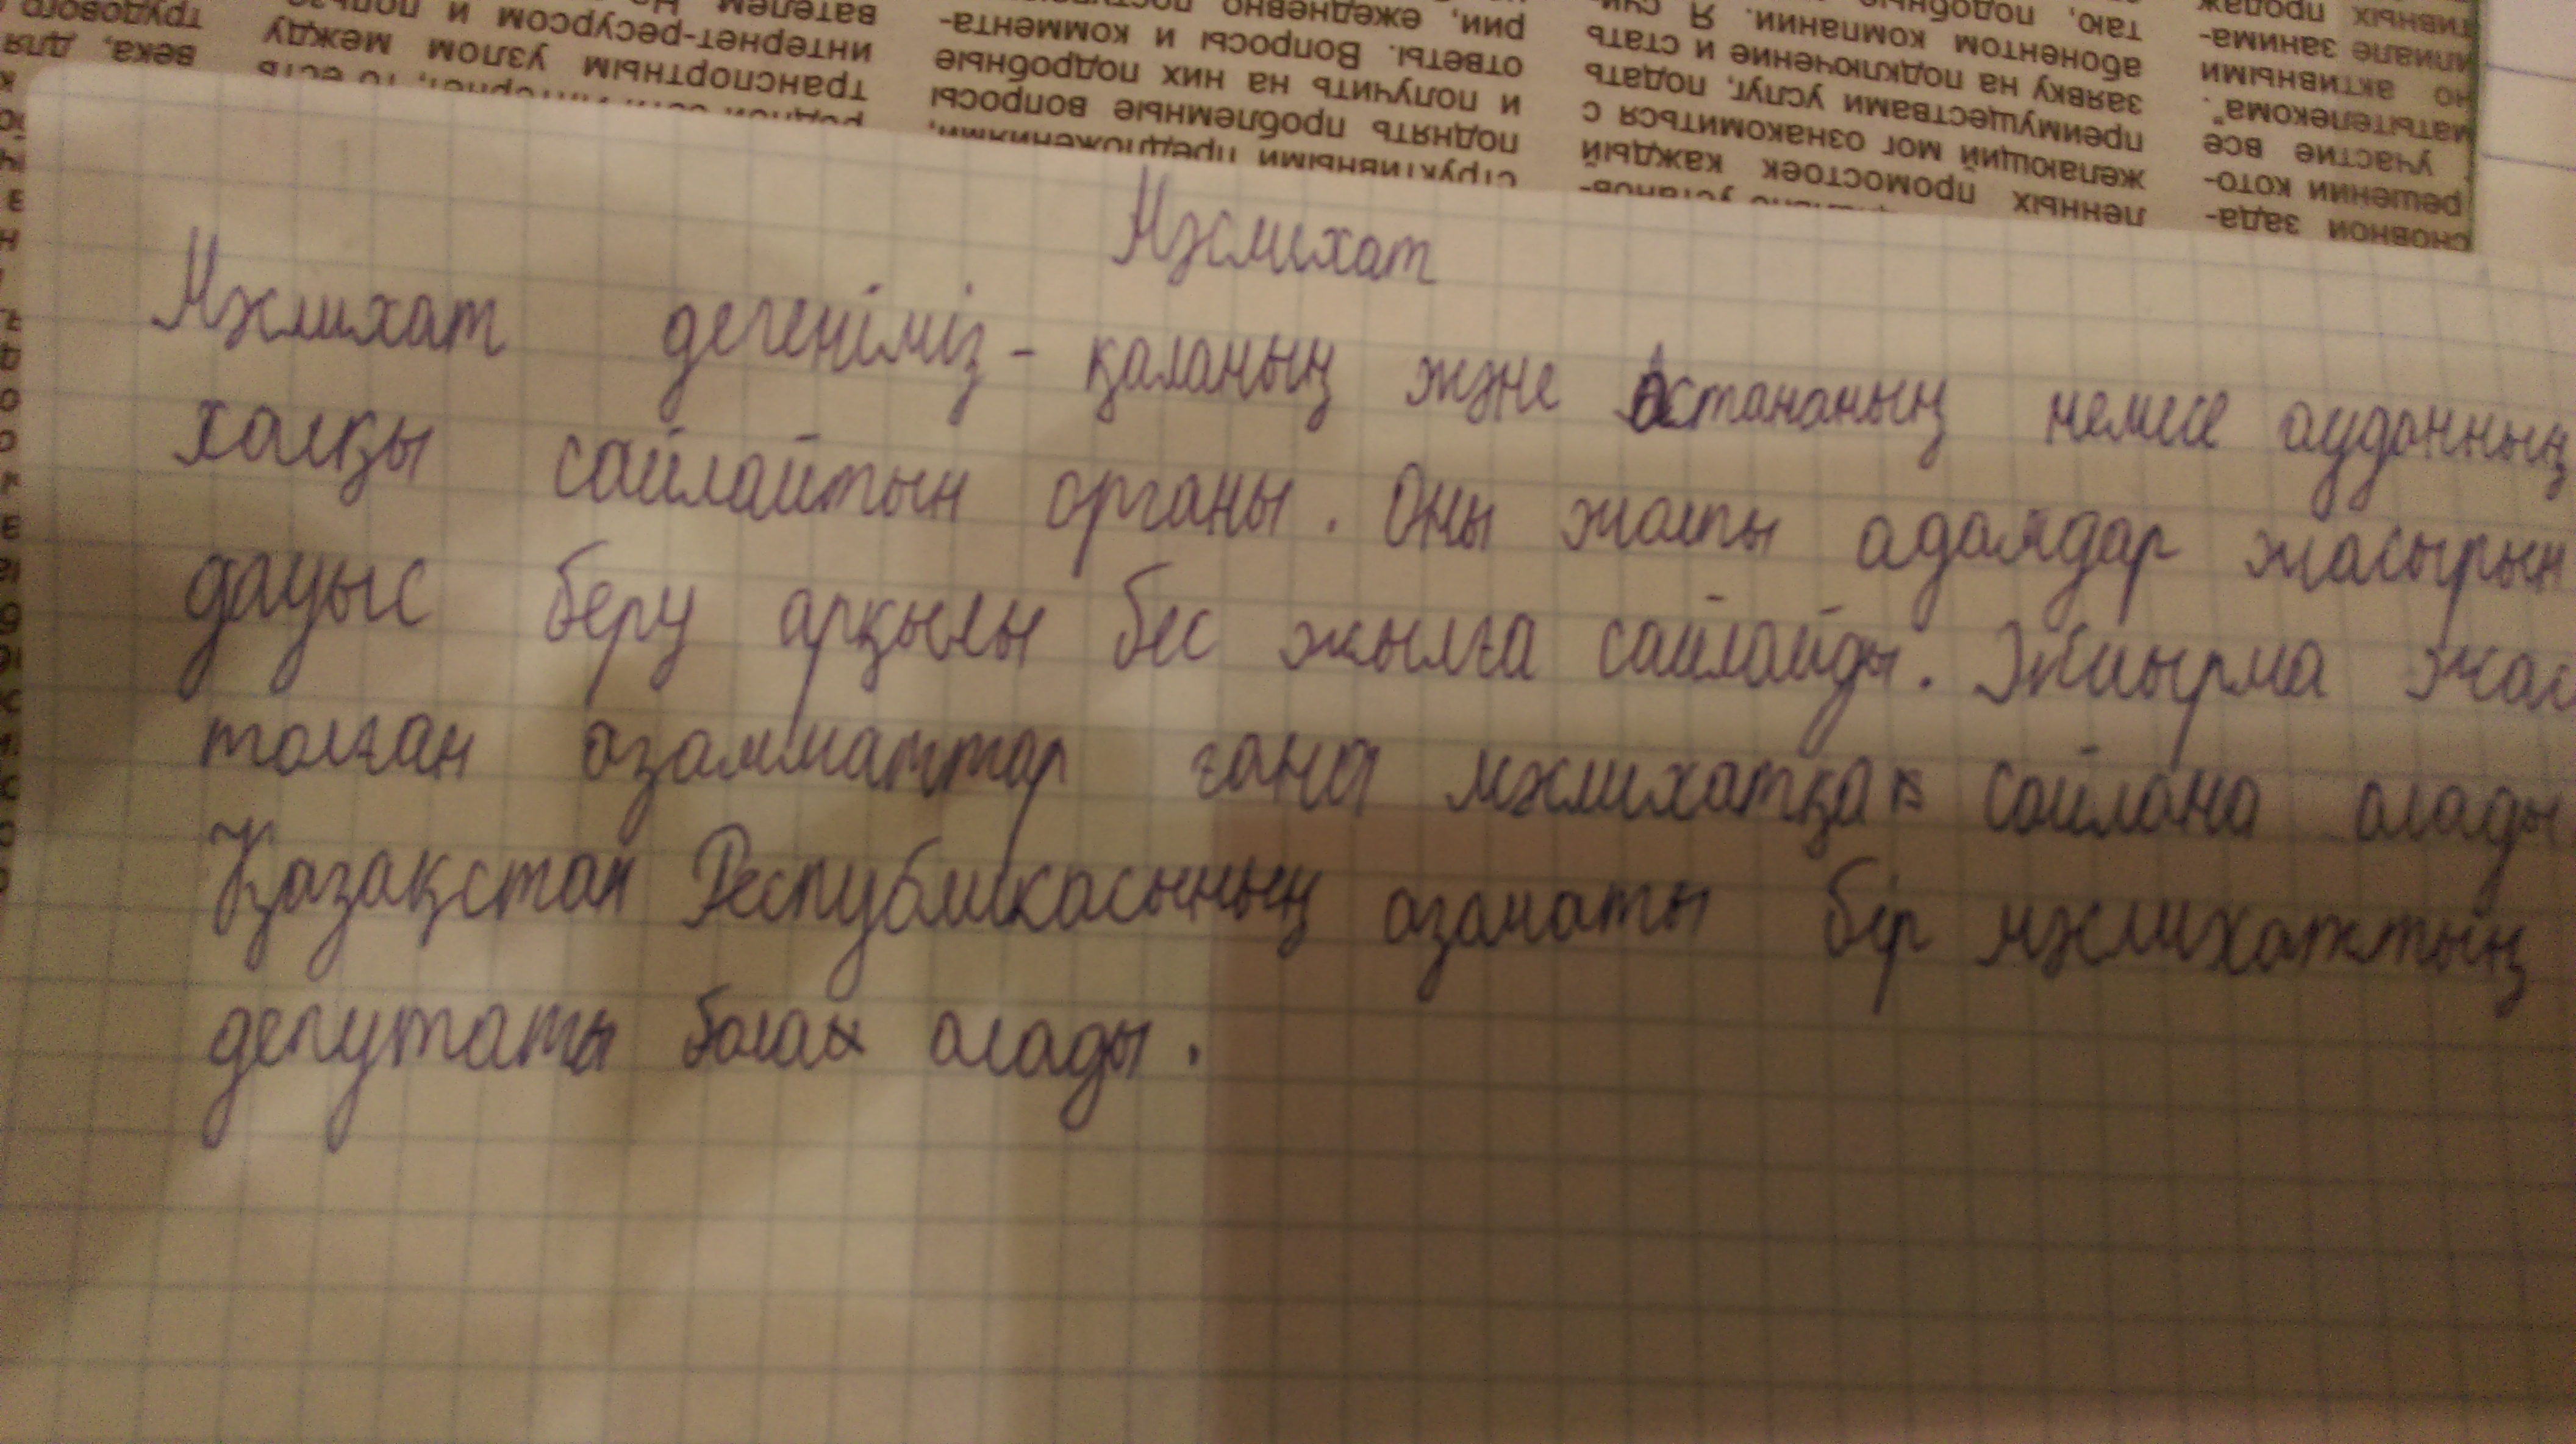 трудового
века, для
транспортным узлом между
интернет-ресурсом и
струкитивными предложениями,
поднять проблемные вопросы
и получить на них подробные
ответы. Вопросы и коммента-
рии, ежедневно
ленных промостоек каждый
желающий мог ознакомиться с
преимуществами услуг, подать
заявку на подключение и стать
абонентом компании. Я
таю,
сновной зада-
решении кото-
участие все
матытелекома".
но активными
занима-
продаж
Мәслихат
Мәслихат дегеніміз - қаланың және Астананың немесе ауданның
халқы сайлайтын органы. Оны жалпы адамдар жасырын
дауыс беру арқылы бес жылға сайлайды. Жиырма жас
толған азамматтар ғана мәслихатқа сайлана алады
Қазақстан Республикасының азаматы бір мәслихаттың
депутаты бола алады.